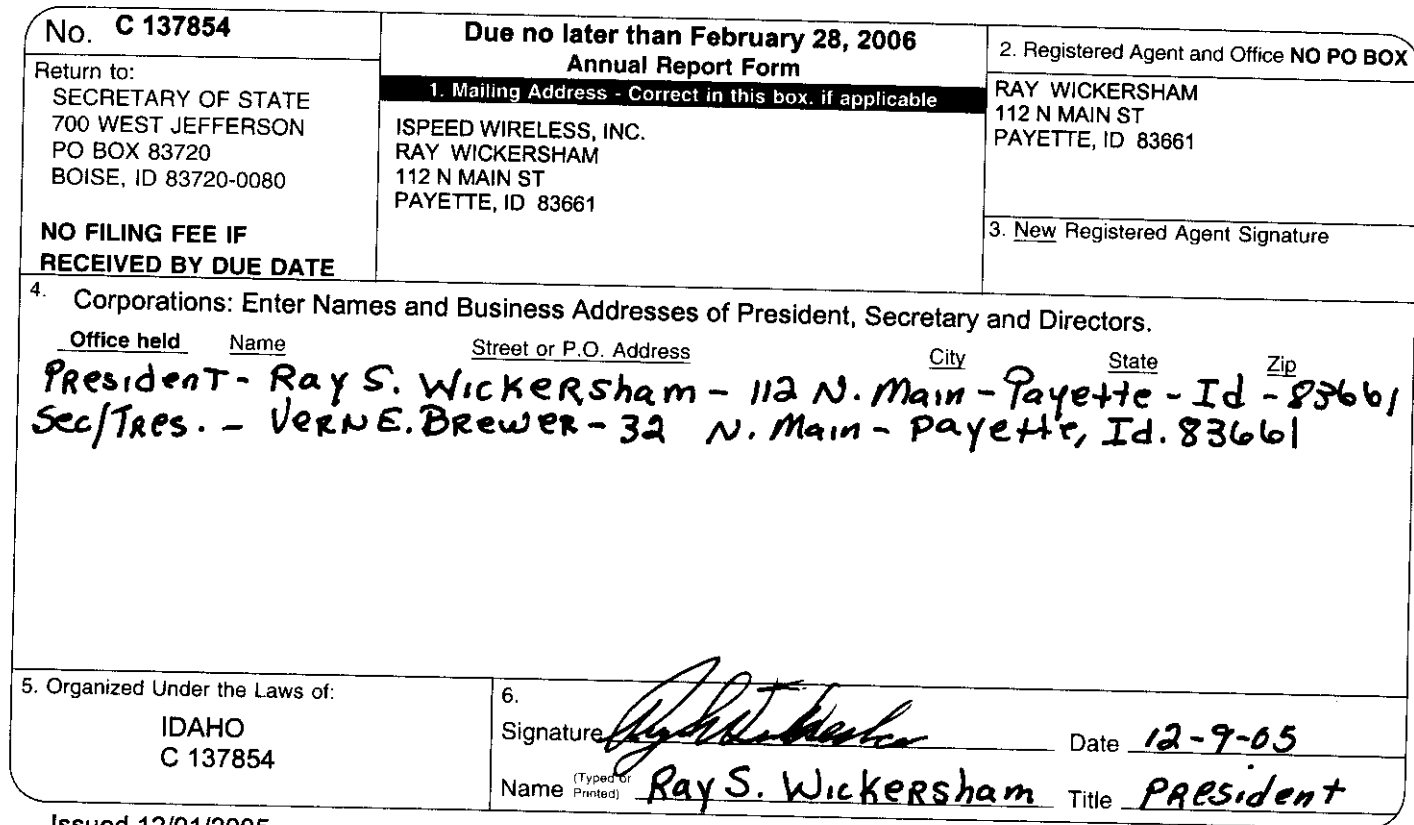 No. C 137854
Return to:
SECRETARY OF STATE
700 WEST JEFFERSON
PO BOX 83720
BOISE, ID 83720-0080
NO FILING FEE IF
RECEIVED BY DUE DATE
Due no later than February 28, 2006
Annual Report Form
1. Mailing Address - Correct in this box. if applicable
ISPEED WIRELESS, INC.
RAY WICKERSHAM
112 N MAIN ST
PAYETTE, ID 83661
2. Registered Agent and Office NO PO BOX
RAY WICKERSHAM
112 N MAIN ST
PAYETTE, ID 83661
3. New Registered Agent Signature
4. Corporations: Enter Names and Business Addresses of President, Secretary and Directors.
Office held Name Street or P.O. Address City State Zip
President - Ray S. Wickersham - 112 N. Main - Payette - Id - 83661
Sec/Tres. - Vern E. Brewer - 32 N. Main - Payette, Id. 83661
5. Organized Under the Laws of:
IDAHO
C 137854
6.
Signature Date 12-9-05
Name (Typed or Printed) Ray S. Wickersham Title President
Issued 12/01/2005